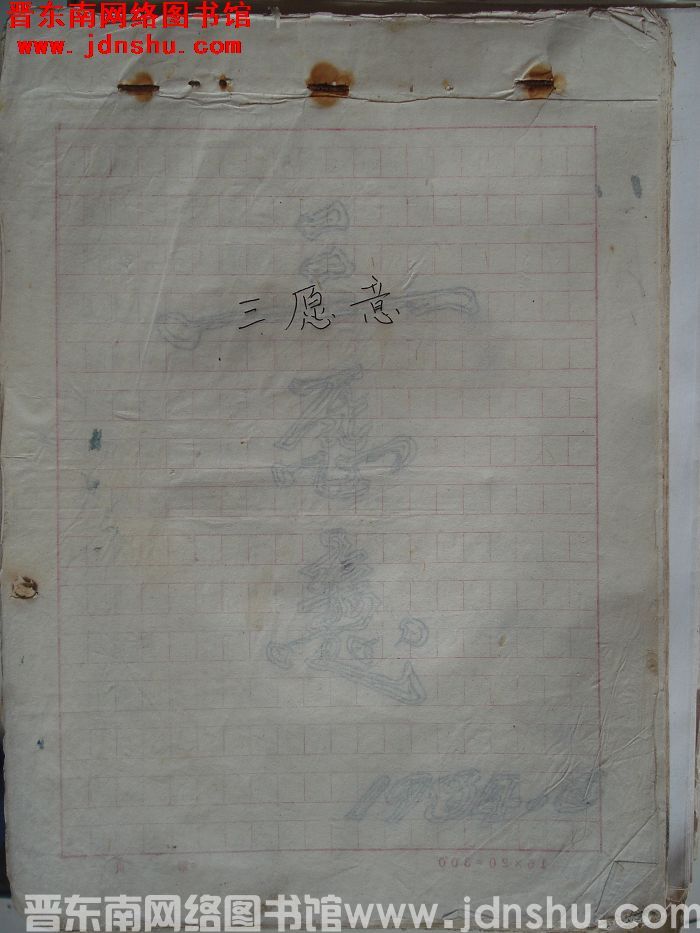 晋东南网络图书馆
www.jdnshu.com
三愿意
15×20=300
晋东南网络图书馆www.jdnshu.com